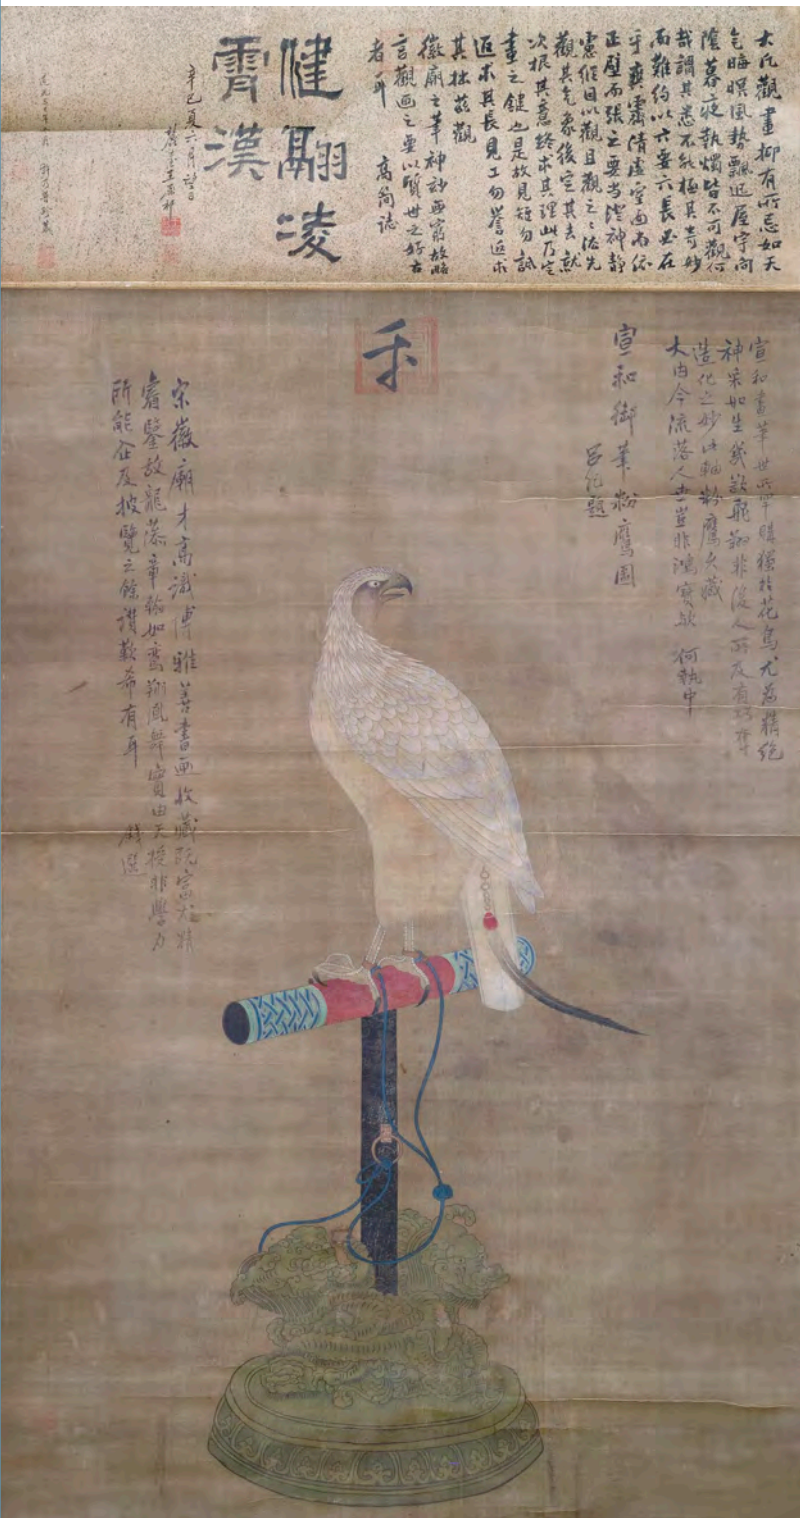 大凡觀畫抑有所忌如天
氣晦暝風勢飄迅屋宇向
陰暮夜執燭皆不可觀何
哉謂其悉不能極其奇妙
而難約以六要六長必在
乎爽霽清虛室面南依
正壁而張之要當澄神靜
慮縱目以觀且觀之之法先
觀其氣象後定其去就
次根其意終求其理此乃定
畫之鍵也是故見短勿詆
返求其長見工勿譽返求
其拙茲觀
徽廟之筆神妙兩窮故略
言觀画之要以質世之好古
者耳
高簡誌
健翮凌
霄漢
辛巳夏六月望日
宣和畫筆世所罕睹獨於花鳥尤為精絕
神采如生幾欲飛翔非後人所及有奪
造化之妙此軸粉鷹久藏
大内今流落人世豈非鴻寶歟 何執中
宣和御筆粉鷹圖
宋徽廟才高識博雅善書画收藏玩賞尤精
睿鑒故龍藻章翰如鸞翔鳳舞實由天授非學力
所能企及披覽之餘讚歎希有耳